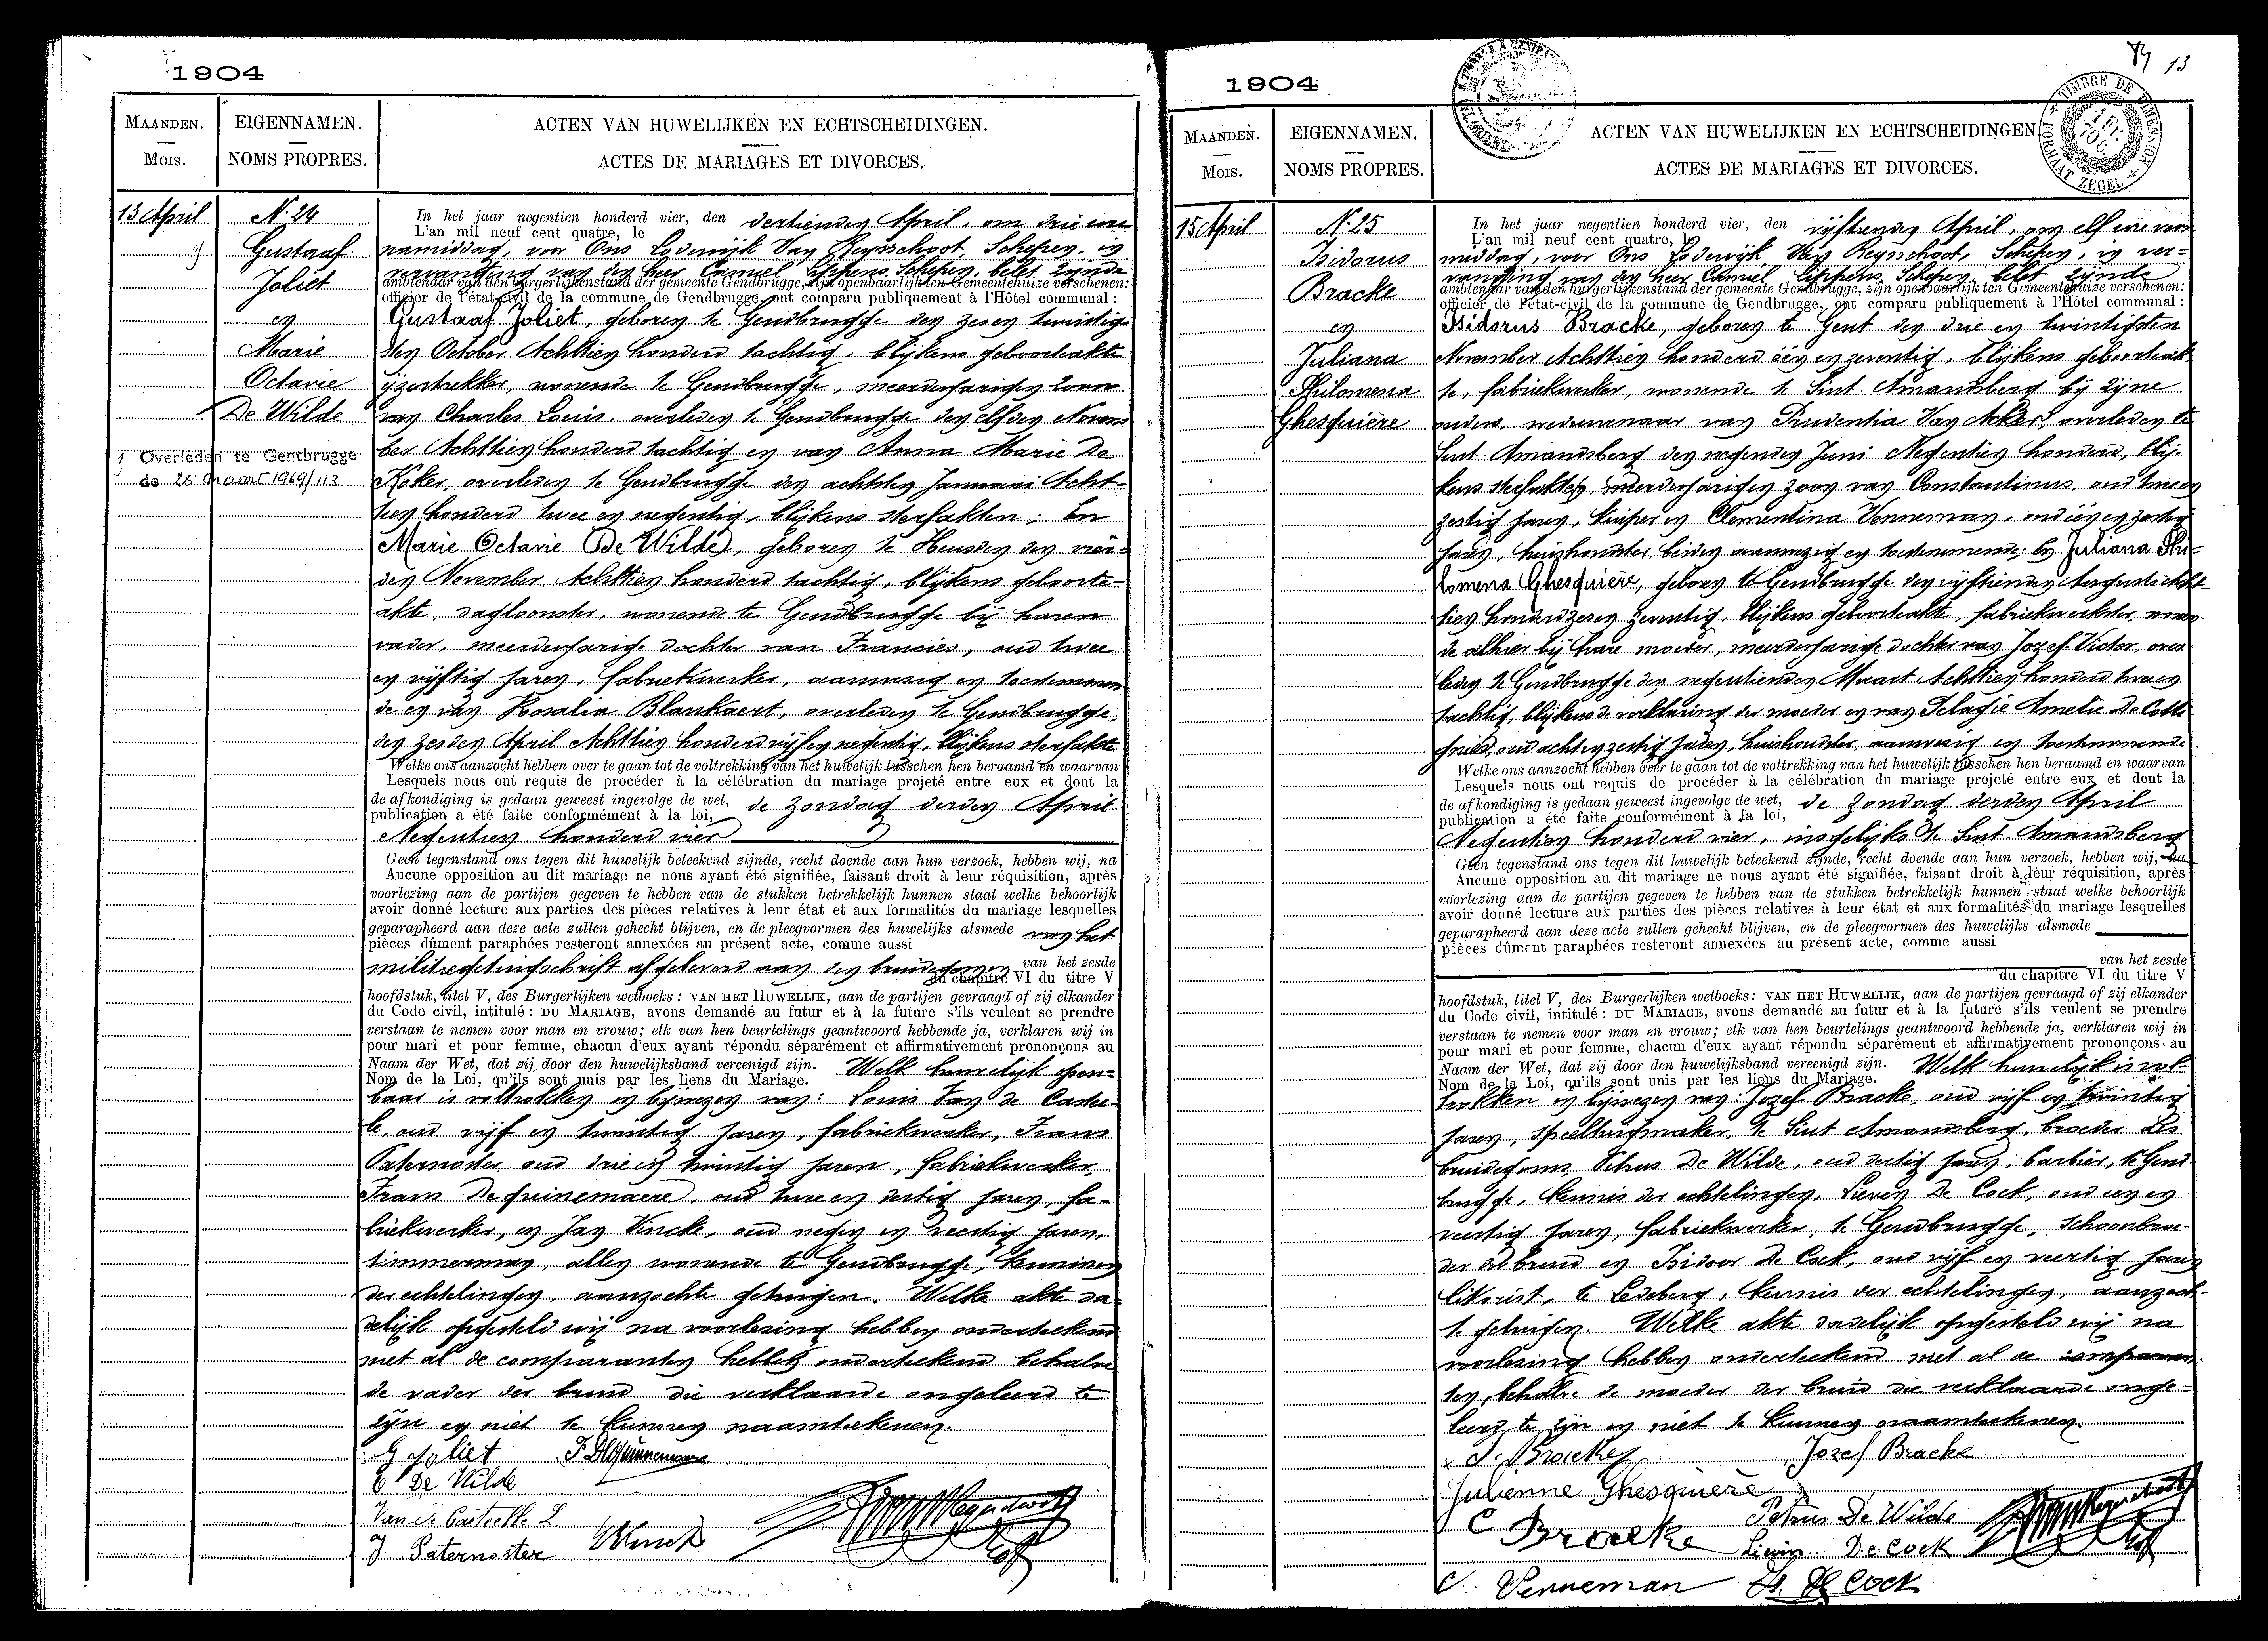 1904
MAANDEN.
Mois.
EIGENNAMEN.
NOMS PROPRES.
ACTEN VAN HUWELIJKEN EN ECHTSCHEIDINGEN.
ACTES DE MARIAGES ET DIVORCES.
13 April
N. 24
Gustaaf
Joliet
en
Marie
Octavie
De Wilde
Overleden te Gentbrugge
de 25 maart 1969/113
In het jaar negentien honderd vier, den dertienden April, om drie ure
L'an mil neuf cent quatre, le
namiddag, voor Ons Lodewijk Van Reysschoot, Schepen, in
vervanging van den heer Camiel Lippens, Schepen, belet zijnde
ambtenaar van den burgerlijkenstand der gemeente Gendbrugge, zijn openbaarlijk ten Gemeentehuize verschenen:
officier de l'état-civil de la commune de Gendbrugge, ont comparu publiquement à l'Hôtel communal:
Gustaaf Joliet, geboren te Gendbrugge den zesen twintig-
sten October Achttien honderd tachtig, blijkens geboorteakte
ijzertrekker, wonende te Gendbrugge, meerderjarigen zoon
van Charles Louis, overleden te Gendbrugge den elfden Novem
ber Achttien honderd tachtig en van Anna Marie De
Koker, overleden te Gendbrugge den achtsten Januari Acht-
tien honderd twee en negentig, blijkens sterfakten; En
Marie Octavie De Wilde, geboren te Heusden den vier-
den November Achttien honderd tachtig, blijkens geboorte-
akte, dagloonster, wonende te Gendbrugge bij haren
vader, meerderjarige dochter van Francies, oud twee
en vijftig jaren, fabriekwerker, aanwezig en toestemmen
de en van Rosalia Blankaert, overleden te Gendbrugge,
den zesden April Achttien honderd vijf en negentig, blijkens sterfakte
Welke ons aanzocht hebben over te gaan tot de voltrekking van het huwelijk tusschen hen beraamd en waarvan
Lesquels nous ont requis de procéder à la célébration du mariage projeté entre eux et dont la
de afkondiging is gedaan geweest ingevolge de wet, de zondag derden April
publication a été faite conformément à la loi,
Negentien honderd vier
Geen tegenstand ons tegen dit huwelijk beteekend zijnde, recht doende aan hun verzoek, hebben wij, na
Aucune opposition au dit mariage ne nous ayant été signifiée, faisant droit à leur réquisition, après
voorlezing aan de partijen gegeven te hebben van de stukken betrekkelijk hunnen staat welke behoorlijk
avoir donné lecture aux parties des pièces relatives à leur état et aux formalités du mariage lesquelles
geparapheerd aan deze acte zullen gehecht blijven, en de pleegvormen des huwelijks alsmede van het
pièces dûment paraphées resteront annexées au présent acte, comme aussi
militiegetuigschrift afgeleverd aan den bruidegom en van het zesde
du chapitre VI du titre V
hoofdstuk, titel V, des Burgerlijken wetboeks: VAN HET HUWELIJK, aan de partijen gevraagd of zij elkander
du Code civil, intitulé: DU MARIAGE, avons demandé au futur et à la future s'ils veulent se prendre
verstaan te nemen voor man en vrouw; elk van hen beurtelings geantwoord hebbende ja, verklaren wij in
pour mari et pour femme, chacun d'eux ayant répondu séparément et affirmativement prononçons au
Naam der Wet, dat zij door den huwelijksband vereenigd zijn. Welk huwelijk open-
Nom de la Loi, qu'ils sont unis par les liens du Mariage.
baar is voltrokken in bijwezen van: Louis Van de Castee-
le, oud vijf en twintig jaren, fabriekwerker, Frans
Paternoster, oud drie en twintig jaren, fabriekwerker,
Frans De guinemaere, oud twee en dertig jaren, fa-
briekwerker, en Jan Vincke, oud negen en veertig jaren,
timmerman, allen wonende te Gendbrugge, kennissen
der echtelingen, aanzochte getuigen. Welke akte da-
delijk opgesteld wij na voorlezing hebben onderteekend
met al de comparanten hebben onderteekend behalve
de vader der bruid die verklaarde ongeleerd te
zijn en niet te kunnen naamteekenen.
G Joliet
O De Wilde
Van de Casteele L
J Paternoster
1904
13
TIMBRE DE DIMENSION
FORMAAT ZEGEL
MAANDEN.
Mois.
EIGENNAMEN.
NOMS PROPRES.
ACTEN VAN HUWELIJKEN EN ECHTSCHEIDINGEN
ACTES DE MARIAGES ET DIVORCES.
15 April
N. 25
Isidorus
Bracke
en
Juliana
Philomena
Ghesquière
In het jaar negentien honderd vier, den vijftienden April, om elf ure voor
L'an mil neuf cent quatre, le
middag, voor Ons Lodewijk Van Reysschoot, Schepen, in ver-
vanging van den heer Camiel Lippens, Schepen, belet zijnde
ambtenaar van den burgerlijkenstand der gemeente Gendbrugge, zijn openbaarlijk ten Gemeentehuize verschenen:
officier de l'état-civil de la commune de Gendbrugge, ont comparu publiquement à l'Hôtel communal:
Isidorus Bracke, geboren te Gent den drie en twintigsten
November Achttien honderd één en zeventig, blijkens geboorteak
te, fabriekwerker, wonende te Sint Amandsberg bij zijne
ouders, weduwnaar van Prudentia Van Acker, overleden te
Sint Amandsberg den negenden Juni Negentien honderd, blij-
kens sterfakten, meerderjarigen zoon van Constantinus, oud twee en
zestig jaren, kuiper en Clementina Venneman, oud één en zestig
jaren, huishoudster, beiden aanwezig en toestemmende; En Juliana Phi-
lomena Ghesquière, geboren te Gendbrugge den vijftienden Augusti Acht
tien honderd zes en zeventig, blijkens geboorteakte, fabriekwerkster, wonen
de alhier bij hare moeder, meerderjarige dochter van Jozef Victor, over
leden te Gendbrugge den negentienden Maart Achttien honderd twee en
tachtig, blijkens de verklaring der moeder en van Pelagie Amelie De Cotte
gnies, oud acht en zestig jaren, huishoudster, aanwezig en toestemmende
Welke ons aanzocht hebben over te gaan tot de voltrekking van het huwelijk tusschen hen beraamd en waarvan
Lesquels nous ont requis de procéder à la célébration du mariage projeté entre eux et dont la
de afkondiging is gedaan geweest ingevolge de wet, de zondag derden April
publication a été faite conformément à la loi,
Negentien honderd vier, insgelijks te Sint Amandsberg
Geen tegenstand ons tegen dit huwelijk beteekend zijnde, recht doende aan hun verzoek, hebben wij, na
Aucune opposition au dit mariage ne nous ayant été signifiée, faisant droit à leur réquisition, après
voorlezing aan de partijen gegeven te hebben van de stukken betrekkelijk hunnen staat welke behoorlijk
avoir donné lecture aux parties des pièces relatives à leur état et aux formalités du mariage lesquelles
geparapheerd aan deze acte zullen gehecht blijven, en de pleegvormen des huwelijks alsmede
pièces dûment paraphées resteront annexées au présent acte, comme aussi
van het zesde
du chapitre VI du titre V
hoofdstuk, titel V, des Burgerlijken wetboeks: VAN HET HUWELIJK, aan de partijen gevraagd of zij elkander
du Code civil, intitulé: DU MARIAGE, avons demandé au futur et à la future s'ils veulent se prendre
verstaan te nemen voor man en vrouw; elk van hen beurtelings geantwoord hebbende ja, verklaren wij in
pour mari et pour femme, chacun d'eux ayant répondu séparément et affirmativement prononçons au
Naam der Wet, dat zij door den huwelijksband vereenigd zijn. Welk huwelijk is vol-
Nom de la Loi, qu'ils sont unis par les liens du Mariage.
trokken in bijwezen van: Jozef Bracke, oud vijf en twintig
jaren, speelturgmaker, te Sint Amandsberg, broeder des
bruidegoms, Petrus De Wilde, oud dertig jaren, barbier, te Gend
brugge, kennis der echtelingen, Lieven De Cock, oud een en
veertig jaren, fabriekwerker, te Gendbrugge, schoonbroe-
der der bruid en Isidoor De Cock, oud vijf en veertig jaren
litkorist, te Ledeberg, kennis der echtelingen, aanzoch-
te getuigen. Welke akte dadelijk opgesteld wij na
voorlezing hebben onderteekend met al de comparan
ten, behalve de moeder der bruid die verklaarde onge-
leerd te zijn en niet te kunnen naamteekenen.
Jozef Bracke
Julienne Ghesquiere
C Bracke
Petrus De Wilde
Lievin De Cock
C. Venneman
Is. De Cock